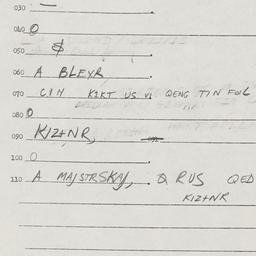 030
040 O
050 $
060 A BLEYR.
070 CIN KIKT US VI QENG TIN FOL
080 O
090 KIZTNR,
100 O
110 A MAJSTRSKAJ, & RUS QED
KIZTNR